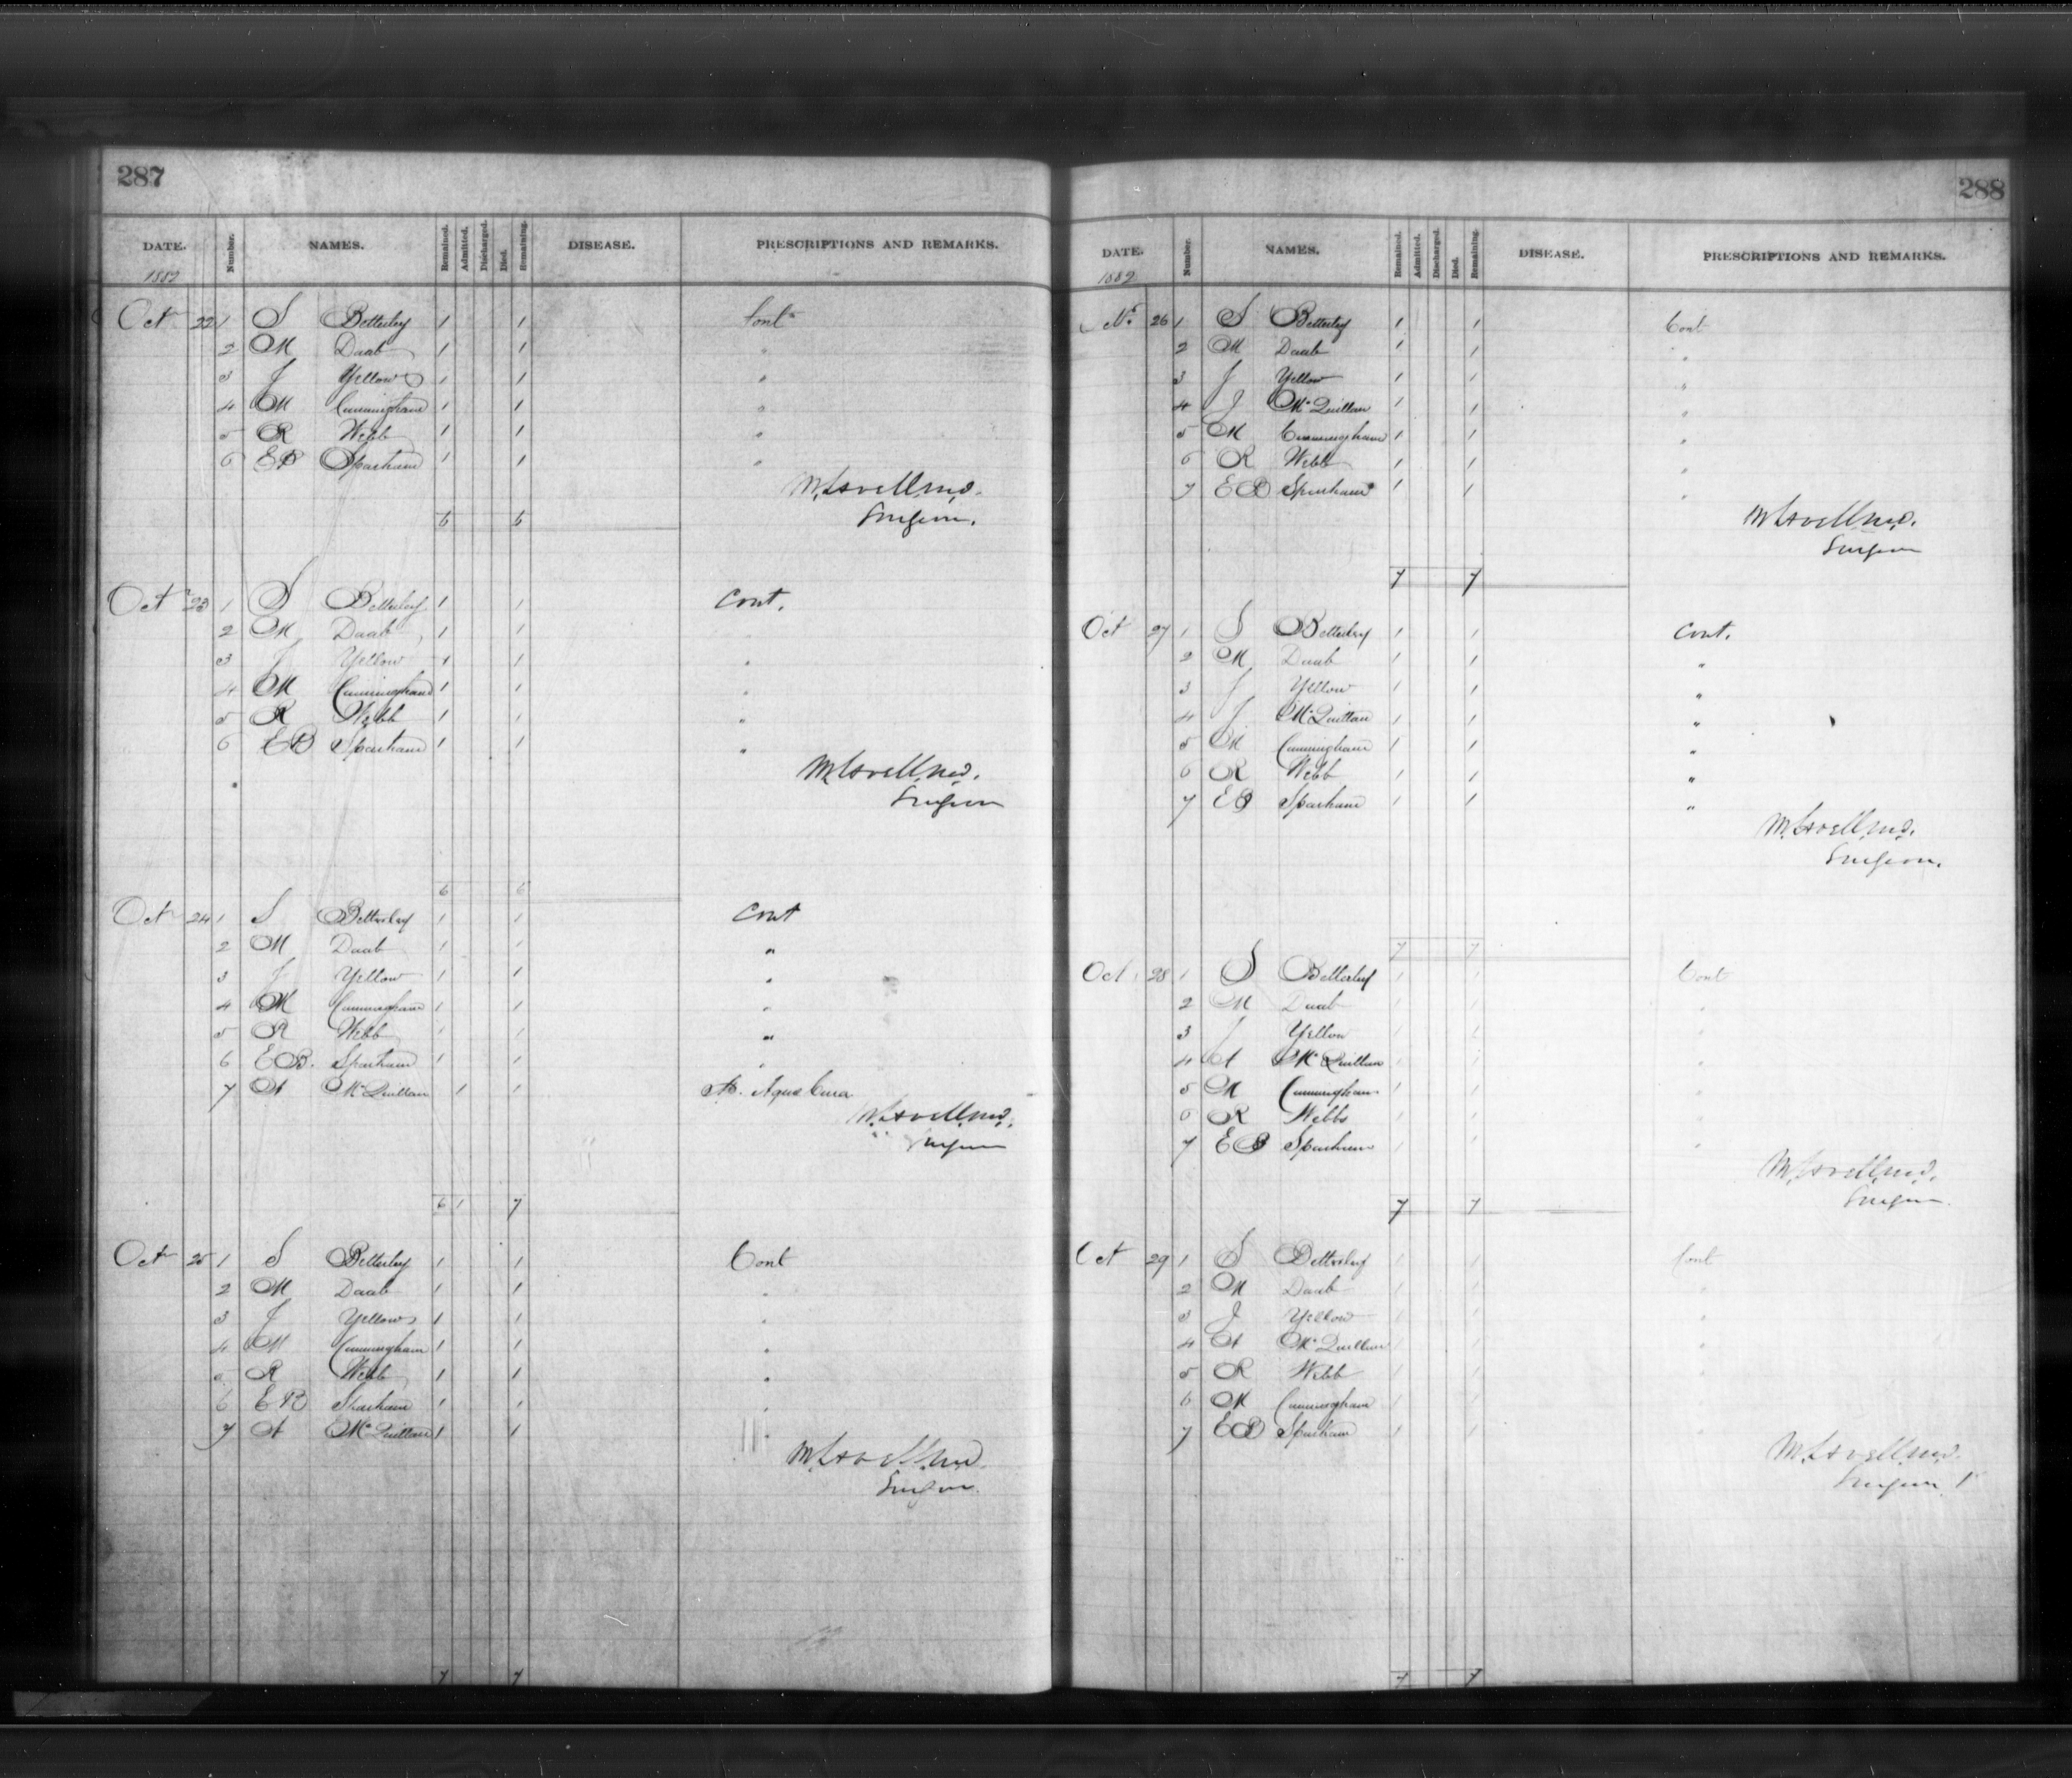 287
DATE. Number. NAMES. Remained. Admitted. Discharged. Died. Remaining. DISEASE. PRESCRIPTIONS AND REMARKS.
1882
Oct 22 1 S Betterley 1 1 Cont
2 M Daab 1 1 "
3 J Yellow 1 1 "
4 M Cunningham 1 1 "
5 R Webb 1 1 "
6 EB Sparham 1 1 "
M. Lavell M.D.
Surgeon.
6 6
Oct 23 1 S Betterley 1 1 Cont.
2 M Daab 1 1
3 J Yellow 1 1 "
4 M Cunningham 1 1 "
5 R Webb 1 1 "
6 EB Sparham 1 1 "
M. Lavell M.D.
Surgeon
6 6
Oct 24 1 S Betterley 1 1 Cont
2 M Daab 1 1 "
3 J Yellow 1 1 "
4 M Cunningham 1 1 "
5 R Webb 1 1 "
6 EB. Sparham 1 1 "
7 A McQuillan 1 1 Aqua
M. Lavell M.D.
Surgeon
6 1 7
Oct 25 1 S Betterley 1 1 Cont
2 M Daab 1 1 "
3 J Yellow 1 1 "
4 M Cunningham 1 1 "
5 R Webb 1 1 "
6 EB Sparham 1 1 "
7 A McQuillan 1 1 "
M. Lavell M.D.
Surgeon
7 7
288
DATE. Number. NAMES. Remained. Admitted. Discharged. Died. Remaining. DISEASE. PRESCRIPTIONS AND REMARKS.
1882
26 1 S Betterley 1 1 Cont
2 M Daab 1 1 "
3 J Yellow 1 1 "
4 J McQuillan 1 1 "
5 M Cunningham 1 1 "
6 R Webb 1 1 "
7 EB Sparham 1 1 "
M. Lavell M.D.
Surgeon
7 7
Oct 27 1 S Betterley 1 1 Cont.
2 M Daab 1 1 "
3 J Yellow 1 1 "
4 J McQuillan 1 1 "
5 M Cunningham 1 1 "
6 R Webb 1 1 "
7 EB Sparham 1 1 "
M. Lavell M.D.
Surgeon.
7 7
Oct 28 1 S Betterley 1 1 Cont
2 M Daab 1 1 "
3 J Yellow 1 1 "
4 A McQuillan 1 1 "
5 M Cunningham 1 1 "
6 R Webb 1 1 "
7 EB Sparham 1 1 "
M. Lavell M.D.
Surgeon
7 7
Oct 29 1 S Betterley 1 1 Cont
2 M Daab 1 1 "
3 J Yellow 1 1 "
4 A McQuillan 1 1 "
5 R Webb 1 1 "
6 M Cunningham 1 1 "
7 EB Sparham 1 1 "
M. Lavell M.D.
Surgeon
7 7